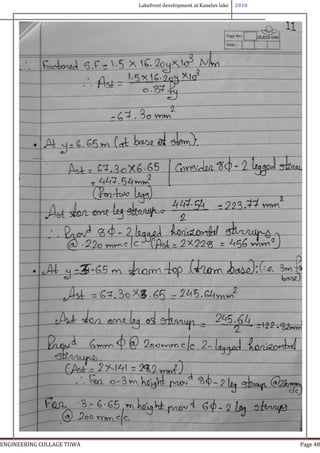 Lakefront development at Kanelav lake 2018
11
Page No:
Date:
CLASS ONE
∴ Factored S.F = 1.5 × 16.20y × 10³ N/m
∴ Ast = 1.5 × 16.20y × 10³ / 0.87 fy
= 67.30 mm²
• At y = 6.65 m (at base of stem).
Ast = 67.30 × 6.65 | Consider 8ϕ - 2 legged stirrup
= 447.54 mm²
(For two legs)
Ast for one leg stirrup = 447.54 / 2 = 223.77 mm²
∴ Prov^d 8ϕ - 2 legged horizontal stirrups
@ 220 mm c/c (Ast = 2 × 228 = 456 mm²)
• At y = 3.65 m from top (from base): (i.e. 3m fr
base)
Ast = 67.30 × 3.65 = 245.64 mm²
Ast for one leg of stirrup = 245.64 / 2 = 122.82 mm²
Prov^d 6mm ϕ @ 200 mm c/c 2-legged horizontal
stirrups.
(Ast = 2 × 141 = 282 mm²)
∴ For 0-3m height prov^d 8ϕ - 2 leg stirrup @ 220mm
c/c)
For, 3 - 6.65 m height prov^d 6ϕ - 2 leg stirrups
@ 200 mm c/c.
ENGINEERING COLLAGE TUWA Page 48